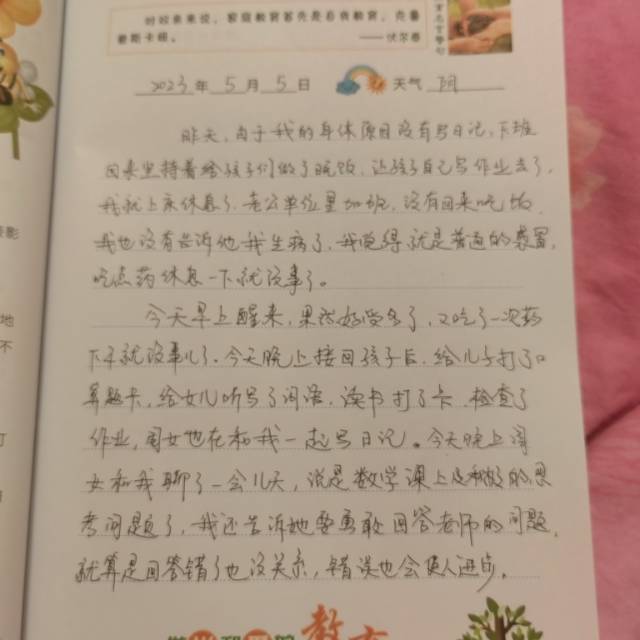 好好亲来说，家庭教育首先是自我教育。克鲁
普斯卡娅。
——伏尔泰
2023年5月5日 天气 阴
昨天，由于我的身体原因没有写日记，下班
回来坚持着给孩子们做了晚饭，让孩子自己写作业去了，
我就上床休息了，老公单位里加班，没有回来吃饭，
我也没有告诉他我生病了，我觉得就是普通的着凉，
吃点药休息一下就没事了。
今天早上醒来，果然好受多了，又吃了一次药
下午就没事儿了。今天晚上接回孩子后，给儿子打了口
算题卡，给女儿听写了词语，读书打了卡，检查了
作业，闺女也在和我一起写日记。今天晚上闺
女和我聊了一会儿天，说是数学课上反积极的思
考问题了，我还告诉她要勇敢回答老师的问题，
就算是回答错了也没关系，错误也会使人进步。
教育